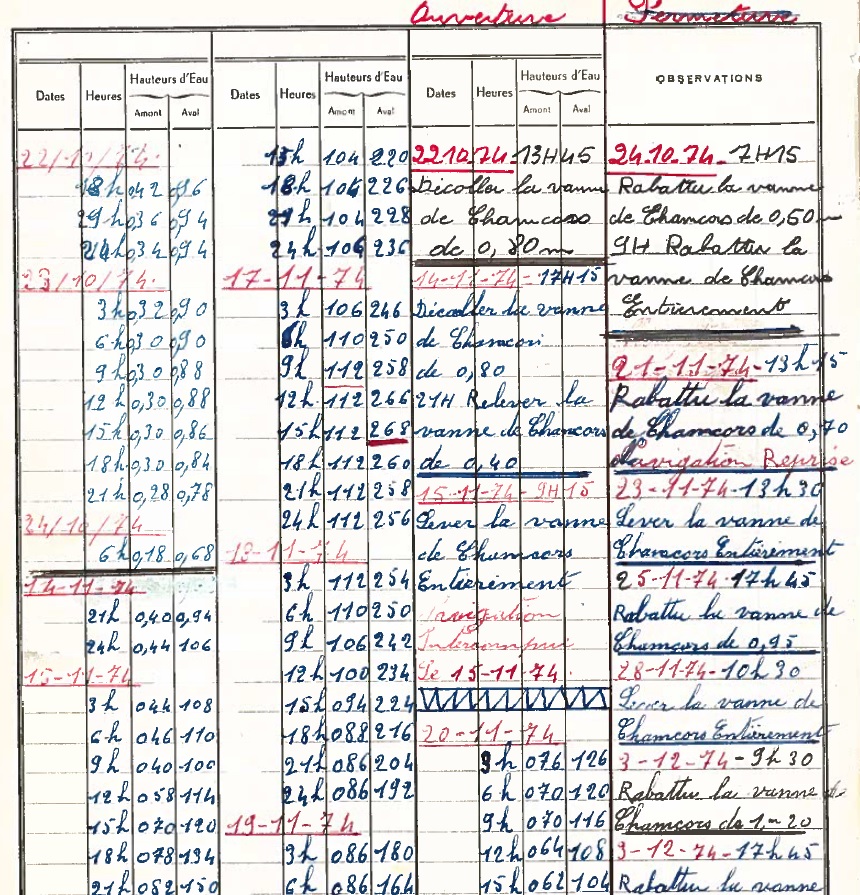 Ouverture
Fermeture
Dates Heures Hauteurs d'Eau
Amont Aval
22/10/74.
18h 042 096
036 094
034 0,94
23/10/74.
3h 0,32 0,90
6h 0,30 0,90
9h 0,30 0,88
12h 0,30 0,88
15h 0,30 0,86
18h 0,30 0,84
21h 0,28 0,78
24/10/74
6h 0,18 0,68
14-11-74
21h 0,40 0,94
24h 0,44 106
15-11-74
3h 044 108
6h 046 110
9h 040 100
12h 058 114
15h 070 120
18h 078 134
21h 082 150
Dates Heures Hauteurs d'Eau
Amont Aval
15h 104 220
18h 104 226
21h 104 228
24h 106 236
17-11-74
3h 106 246
6h 110 250
9h 112 258
12h 112 266
15h 112 268
18h 112 260
21h 112 258
24h 112 256
-11-74
3h 112 254
6h 110 250
9h 106 242
12h 100 234
15h 094 224
18h 088 216
21h 086 204
24h 086 192
19-11-74
3h 086 180
6h 086 164
Dates Heures Hauteurs d'Eau
Amont Aval
22 10 74 13H45
Décoller la vanne
de Chamcors
de 0,80m
14-11-74 - 17H15
Décoller la vanne
de Chamcors
de 0,80
21H Relever la
vanne de Chamcors
de 0,40
15-11-74 - 9H15
Lever la vanne
de Chamcors
Entièriment
Navigation
Interrompue
Le 15-11-74.
20-11-74
3h 076 126
6h 070 120
9h 070 116
12h 064 108
15h 062 104
OBSERVATIONS
24-10-74_ 7H15
Rabattu la vanne
de Chamcors de 0,60
9H Rabattu la
vanne de Chamcors
Entièrement
21-11-74-13h15
Rabattu la vanne
de Chamcors de 0,70
Navigation Reprise
23-11-74-13h30
Lever la vanne de
Chamcors Entièrement
25-11-74-17h45
Rabattu la vanne de
Chamcors de 0,95
28-11-74-10h30
Lever la vanne de
Chamcors Entièrement
3-12-74-9h30
Rabattu la vanne de
Chamcors de 1,-20
3-12-74-17h45
Rabattu la vanne